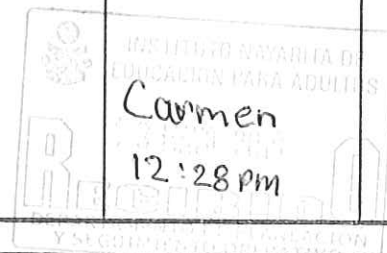 INSTITUTO NAYARITA DE
EDUCACION PARA ADULTOS
Carmen
12:28 pm
Y SEGUIMIENTO OPERATIVO